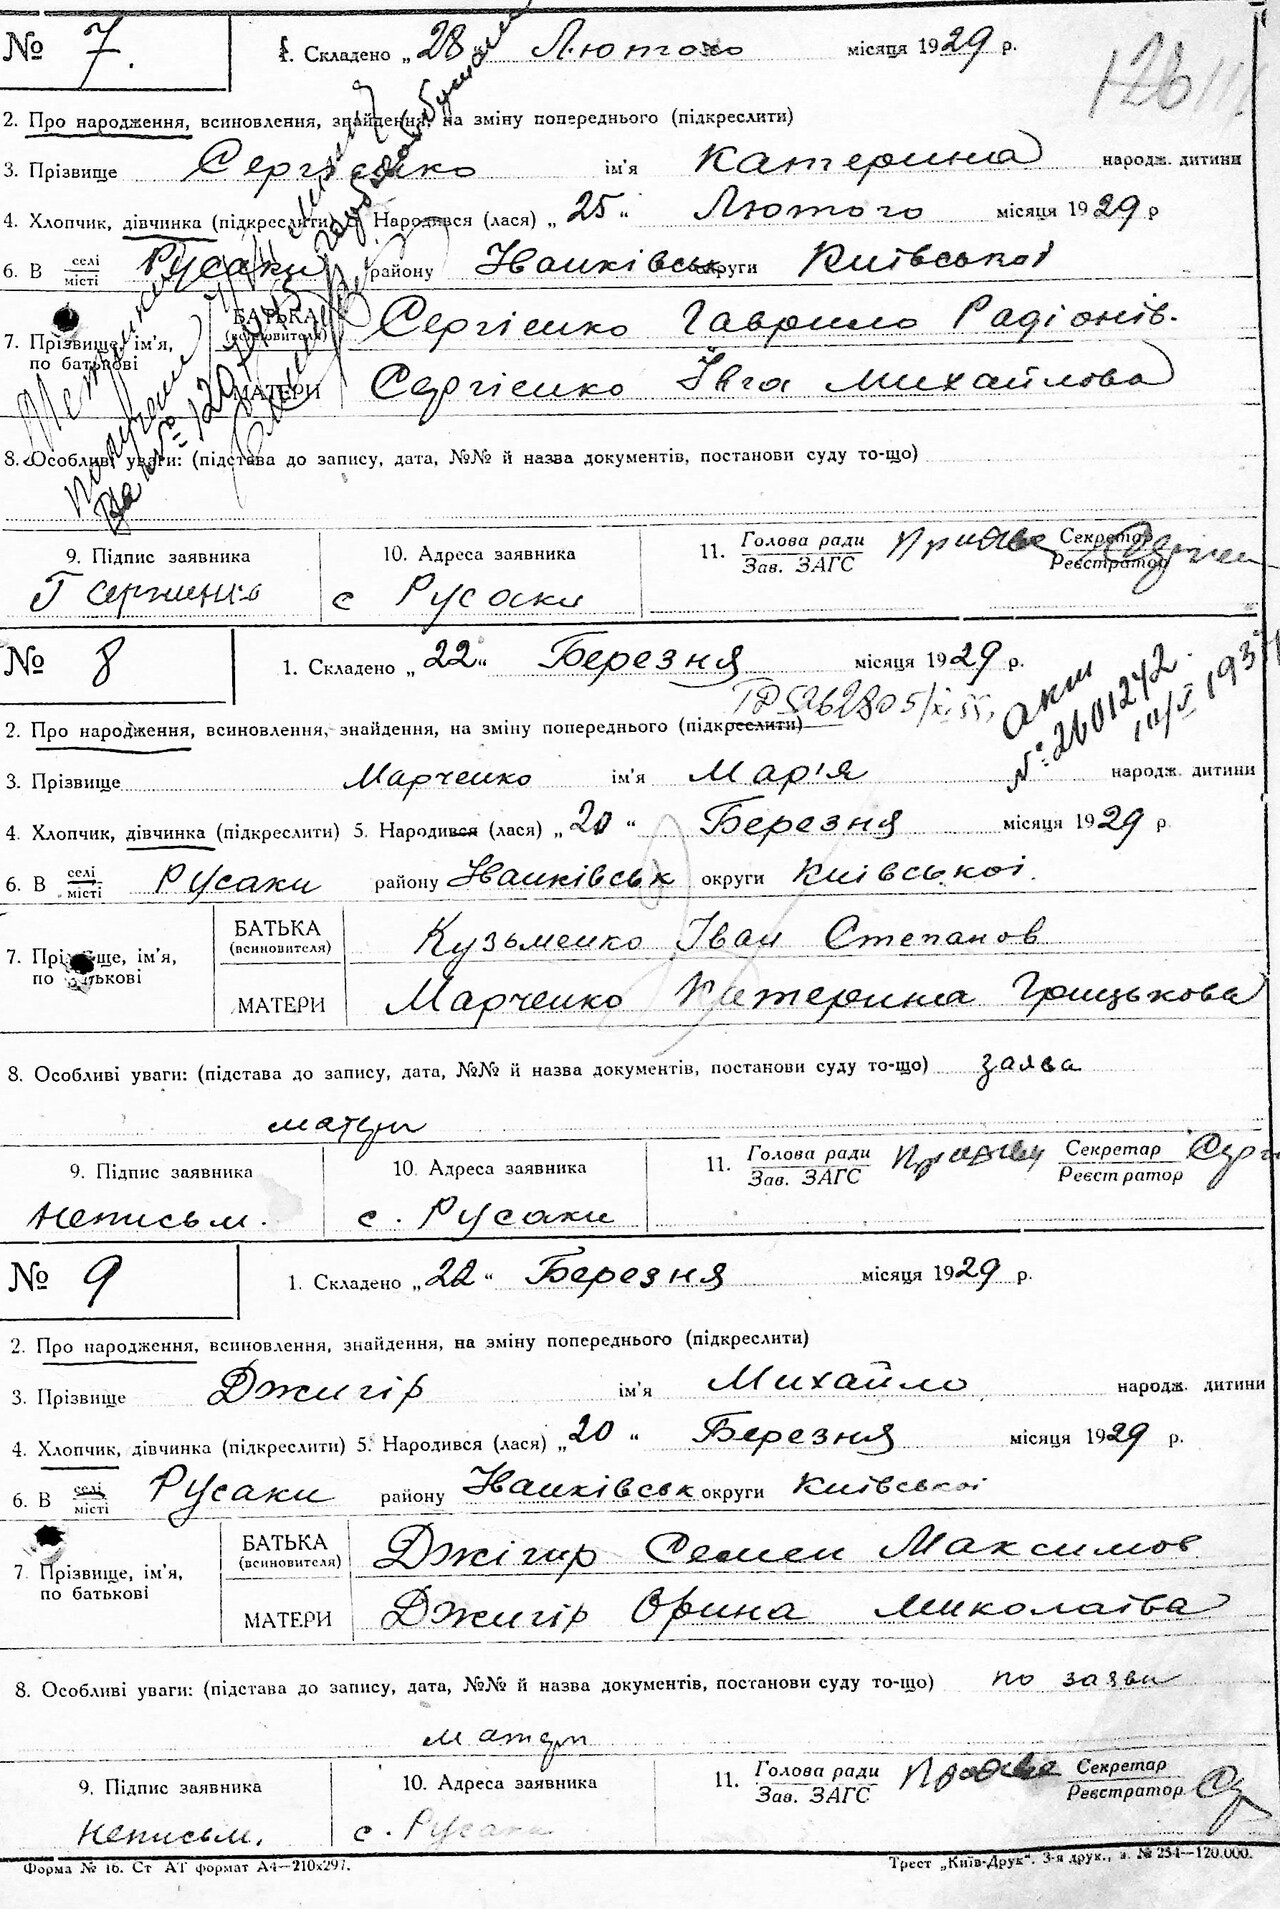 № 7. 1. Складено „28" Лютого місяця 1929 р.
2. Про народження, всиновлення, знайдення, на зміну попереднього (підкреслити)
3. Прізвище Сергієнко ім'я Катерина народж. дитини
4. Хлопчик, дівчинка (підкреслити) 5. Народився (лася) „25" Лютого місяця 1929 р
6. В селі/місті Русаки району Іванківськ округи Київської
7. Прізвище, ім'я, по батькові
БАТЬКА (всиновителя) Сергієнко Гаврило Радіонів.
МАТЕРИ Сергієнко Ївга Михайлова
8. Особливі уваги: (підстава до запису, дата, №№ й назва документів, постанови суду то-що)
9. Підпис заявника 10. Адреса заявника 11. Голова ради Секретар
Зав. ЗАГС Реєстратор
Г Сергиенко с Русаки
№ 8 1. Складено „22" Березня місяця 1929 р.
2. Про народження, всиновлення, знайдення, на зміну попереднього (підкреслити)
акт
№ 2601242.
3. Прізвище Марченко ім'я Мар'я народж. дитини
4. Хлопчик, дівчинка (підкреслити) 5. Народився (лася) „20" Березня місяця 1929 р
6. В селі/місті Русаки району Іванківськ округи Київської.
7. Прізвище, ім'я, по батькові
БАТЬКА (всиновителя) Кузьменко Іван Степанов
МАТЕРИ Марченко Катерина Грицькова
8. Особливі уваги: (підстава до запису, дата, №№ й назва документів, постанови суду то-що) заява
матери
9. Підпис заявника 10. Адреса заявника 11. Голова ради Секретар
Зав. ЗАГС Реєстратор
Неписьм. с. Русаки
№ 9 1. Складено „22" Березня місяця 1929 р.
2. Про народження, всиновлення, знайдення, на зміну попереднього (підкреслити)
3. Прізвище Джигір ім'я Михайло народж. дитини
4. Хлопчик, дівчинка (підкреслити) 5. Народився (лася) „20" Березня місяця 1929 р.
6. В селі/місті Русаки району Іванківськ округи Київської
7. Прізвище, ім'я, по батькові
БАТЬКА (всиновителя) Джігир Семен Максимов
МАТЕРИ Джигір Орина Миколаїва
8. Особливі уваги: (підстава до запису, дата, №№ й назва документів, постанови суду то-що) по заяви
матери
9. Підпис заявника 10. Адреса заявника 11. Голова ради Секретар
Зав. ЗАГС Реєстратор
Неписьм. с. Русаки
Форма № 16. Ст АТ формат А4—210х297. Трест „Київ-Друк". 3-я друк., з. № 254—120.000.